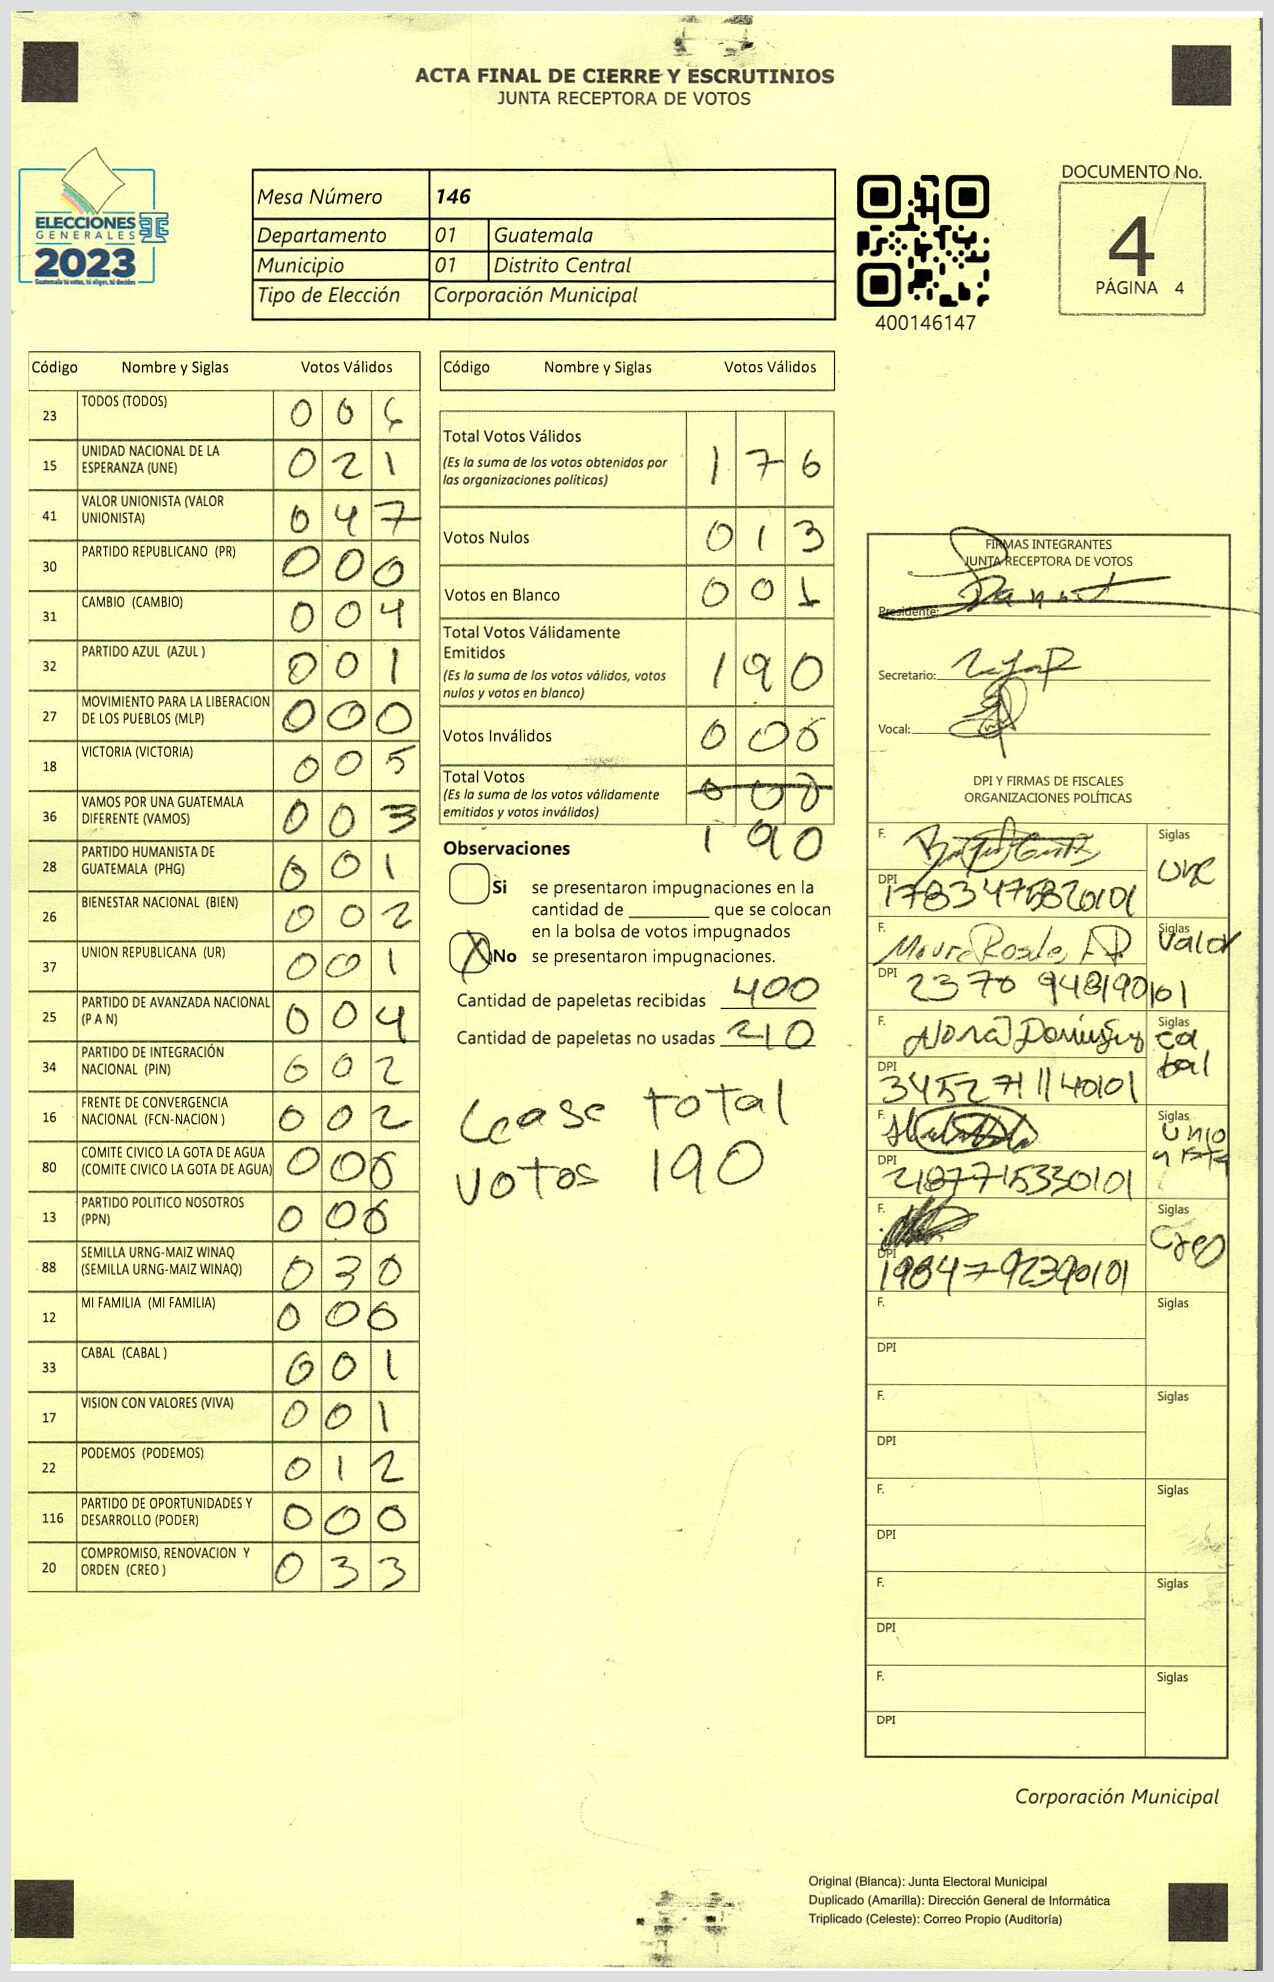 ACTA FINAL DE CIERRE Y ESCRUTINIOS
JUNTA RECEPTORA DE VOTOS
ELECCIONES
GENERALES
2023
Guatemala tú votas, tú eliges, tú decides
Mesa Número 146
Departamento 01 Guatemala
Municipio 01 Distrito Central
Tipo de Elección Corporación Municipal
400146147
DOCUMENTO No.
4
PÁGINA 4
Código Nombre y Siglas Votos Válidos
23 TODOS (TODOS) 0 0 6
15 UNIDAD NACIONAL DE LA ESPERANZA (UNE) 0 2 1
41 VALOR UNIONISTA (VALOR UNIONISTA) 0 4 7
30 PARTIDO REPUBLICANO (PR) 0 0 0
31 CAMBIO (CAMBIO) 0 0 4
32 PARTIDO AZUL (AZUL ) 0 0 1
27 MOVIMIENTO PARA LA LIBERACION DE LOS PUEBLOS (MLP) 0 0 0
18 VICTORIA (VICTORIA) 0 0 5
36 VAMOS POR UNA GUATEMALA DIFERENTE (VAMOS) 0 0 3
28 PARTIDO HUMANISTA DE GUATEMALA (PHG) 0 0 1
26 BIENESTAR NACIONAL (BIEN) 0 0 2
37 UNION REPUBLICANA (UR) 0 0 1
25 PARTIDO DE AVANZADA NACIONAL (P A N) 0 0 4
34 PARTIDO DE INTEGRACIÓN NACIONAL (PIN) 0 0 2
16 FRENTE DE CONVERGENCIA NACIONAL (FCN-NACION ) 0 0 2
80 COMITE CIVICO LA GOTA DE AGUA (COMITE CIVICO LA GOTA DE AGUA) 0 0 0
13 PARTIDO POLITICO NOSOTROS (PPN) 0 0 0
88 SEMILLA URNG-MAIZ WINAQ (SEMILLA URNG-MAIZ WINAQ) 0 3 0
12 MI FAMILIA (MI FAMILIA) 0 0 0
33 CABAL (CABAL ) 0 0 1
17 VISION CON VALORES (VIVA) 0 0 1
22 PODEMOS (PODEMOS) 0 1 2
116 PARTIDO DE OPORTUNIDADES Y DESARROLLO (PODER) 0 0 0
20 COMPROMISO, RENOVACION Y ORDEN (CREO ) 0 3 3
Código Nombre y Siglas Votos Válidos
Total Votos Válidos 1 7 6
(Es la suma de los votos obtenidos por
las organizaciones políticas)
Votos Nulos 0 1 3
Votos en Blanco 0 0 1
Total Votos Válidamente
Emitidos 1 9 0
(Es la suma de los votos válidos, votos
nulos y votos en blanco)
Votos Inválidos 0 0 0
Total Votos 0 0 0
(Es la suma de los votos válidamente
emitidos y votos inválidos)
1 9 0
Observaciones
Si se presentaron impugnaciones en la
cantidad de ________ que se colocan
en la bolsa de votos impugnados
X No se presentaron impugnaciones.
Cantidad de papeletas recibidas 400
Cantidad de papeletas no usadas 210
Lease total
votos 190
FIRMAS INTEGRANTES
JUNTA RECEPTORA DE VOTOS
Presidente:
Secretario:
Vocal:
DPI Y FIRMAS DE FISCALES
ORGANIZACIONES POLÍTICAS
F. Siglas
UNE
DPI 1783475820101
F. Siglas
Valor
DPI 2370 948190101
F. Siglas
Ca
bal
DPI 3452711140101
F. Siglas
Unio
nista
DPI 2187715330101
F. Siglas
Creo
DPI 1984792390101
F. Siglas
DPI
F. Siglas
DPI
F. Siglas
DPI
F. Siglas
DPI
F. Siglas
DPI
Corporación Municipal
Original (Blanca): Junta Electoral Municipal
Duplicado (Amarilla): Dirección General de Informática
Triplicado (Celeste): Correo Propio (Auditoría)